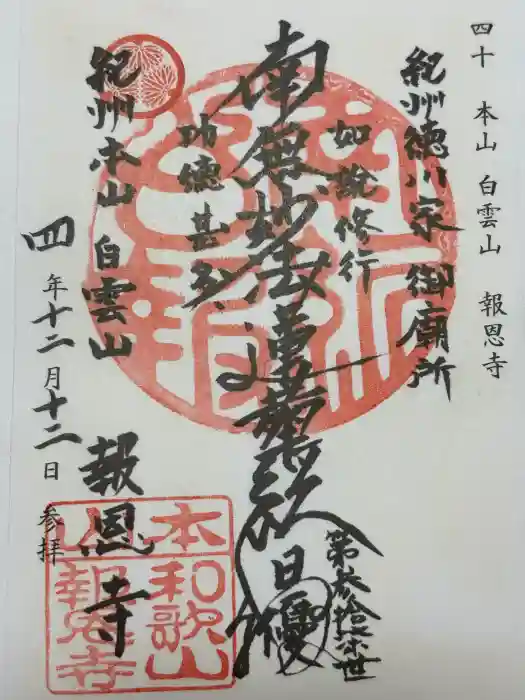 四十 本山 白雲山 報恩寺
紀州徳川家御廟所
如説修行
南無妙法蓮華経
功徳甚多
紀州本山 白雲山 報恩寺
四年十二月十二日 参拝
日優
本山
和歌山
報恩寺